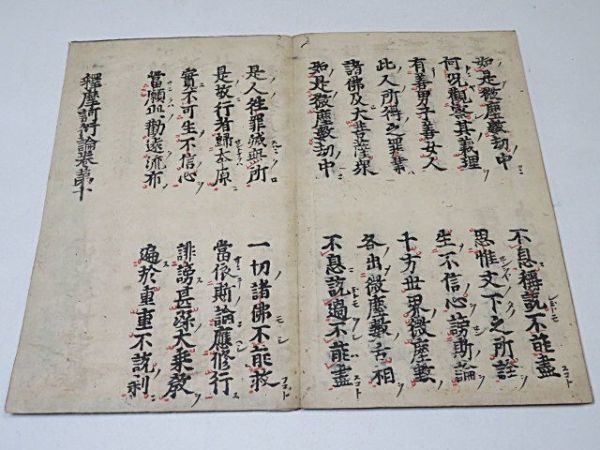 如是微塵數劫中　不息稱說不能盡
何況觀察其義理　思惟文下之所詮
有善男子善女人　生不信心謗斯論
此人所得之罪業　十方世界微塵數
諸佛及大菩薩眾　各出微塵數舌相
如是微塵數劫中　不息說過不能盡
是人徃罪滅無所　一切諸佛不能救
是故行者歸本原　當依斯論應修行
實不可生不信心　誹謗甚深大乘教
當願此勸遠流布　遍於重重不說利
釋摩訶衍論卷第十